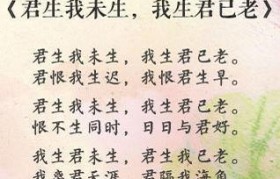 《君生我未生，我生君已老》
君生我未生，我生君已老。
君恨我生迟，我恨君生早。
君生我未生，我生君已老。
恨不生同时，日日与君好。
我生君未生，君生我已老。
我离君天涯，君隔我海角。